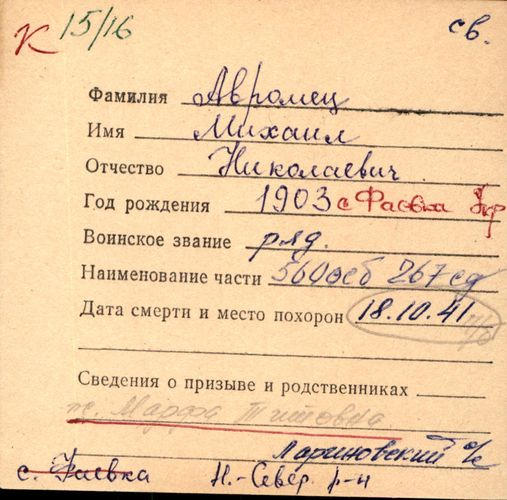 К 15/16 св.
Фамилия Авромец
Имя Михаил
Отчество Николаевич
Год рождения 1903 с Фаевка Укр
Воинское звание ряд.
Наименование части 560осб 267 сд
Дата смерти и место похорон 18.10.41 п/б
Сведения о призыве и родственниках
ж. Марфа Титовна
Лариновский с/с
с. Фаевка Н.-Север. р-н